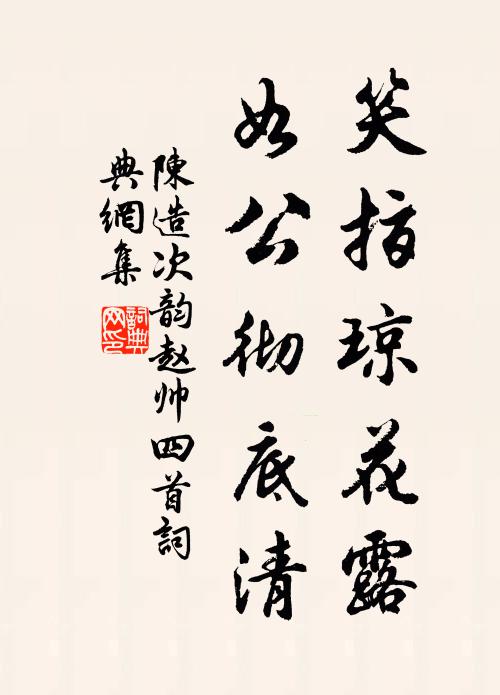 笑指琼花露
如公彻底清
陳造次韵赵帅四首詞
典網集
詞典网印